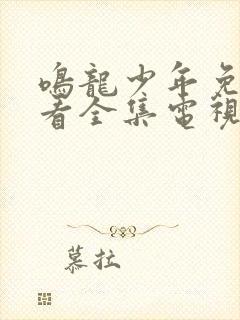 鳴龍少年免
看全集電視
慕拉